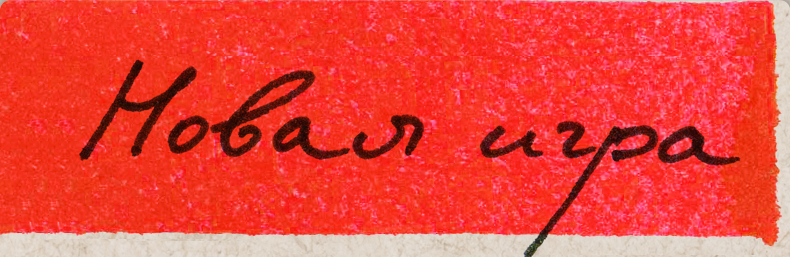 Новая игра